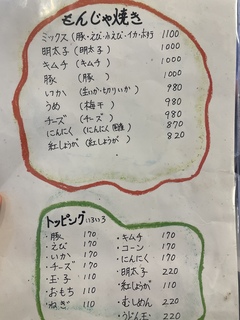 もんじゃ焼き
ミックス (豚・えび・イカ・) 1100
明太子 (明太子) 1000
キムチ (キムチ) 1000
豚 (豚) 1000
いか (生いか・切りいか) 980
うめ (梅干) 980
チーズ (チーズ) 980
にんにく (にんにく) 870
紅しょうが (紅しょうが) 820
トッピングいろいろ
・豚 170
・えび 170
・いか 170
・チーズ 170
・玉子 110
・おもち 110
・ねぎ 110
・キムチ 170
・コーン 170
・にんにく 170
・明太子 220
・紅しょうが 110
・むしめん 220
・うどん玉 220